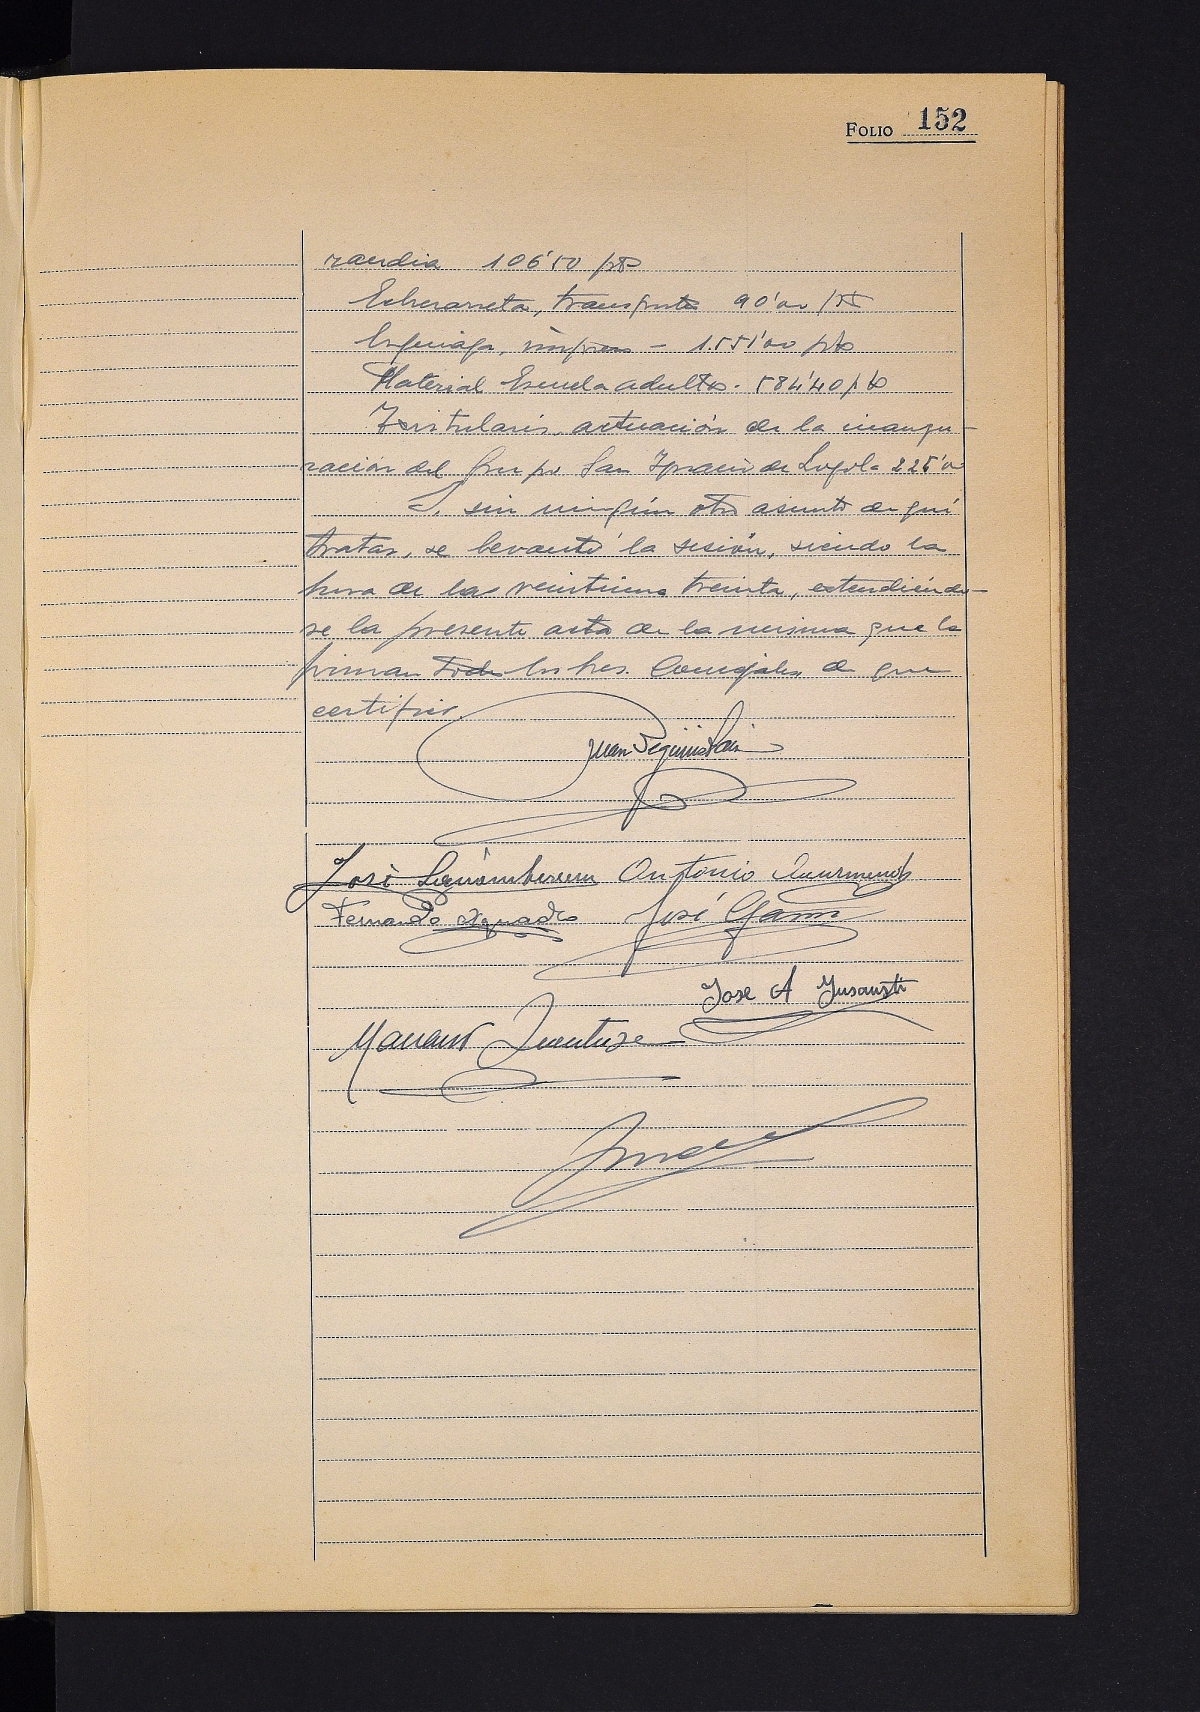 FOLIO 152
randia 106'50 pts
Echezarreta, transporte 90'00 pts
Eguiaga, impreso - 1.551'00 pts
Material Escuela adultos. 584'40 pts
Txistularis, actuación de la inaugu-
ración del Grupo San Ignacio de Loyola 225'0
Y, sin ningún otro asunto de qué
tratar, se levantó la sesión, siendo la
hora de las veintiuna treinta, extendiéndo-
se la presente acta de la misma que la
firman todos los Sres. Concejales de que
certifico.
Juan
José Antonio
Fernando José
Jose A
Mariano